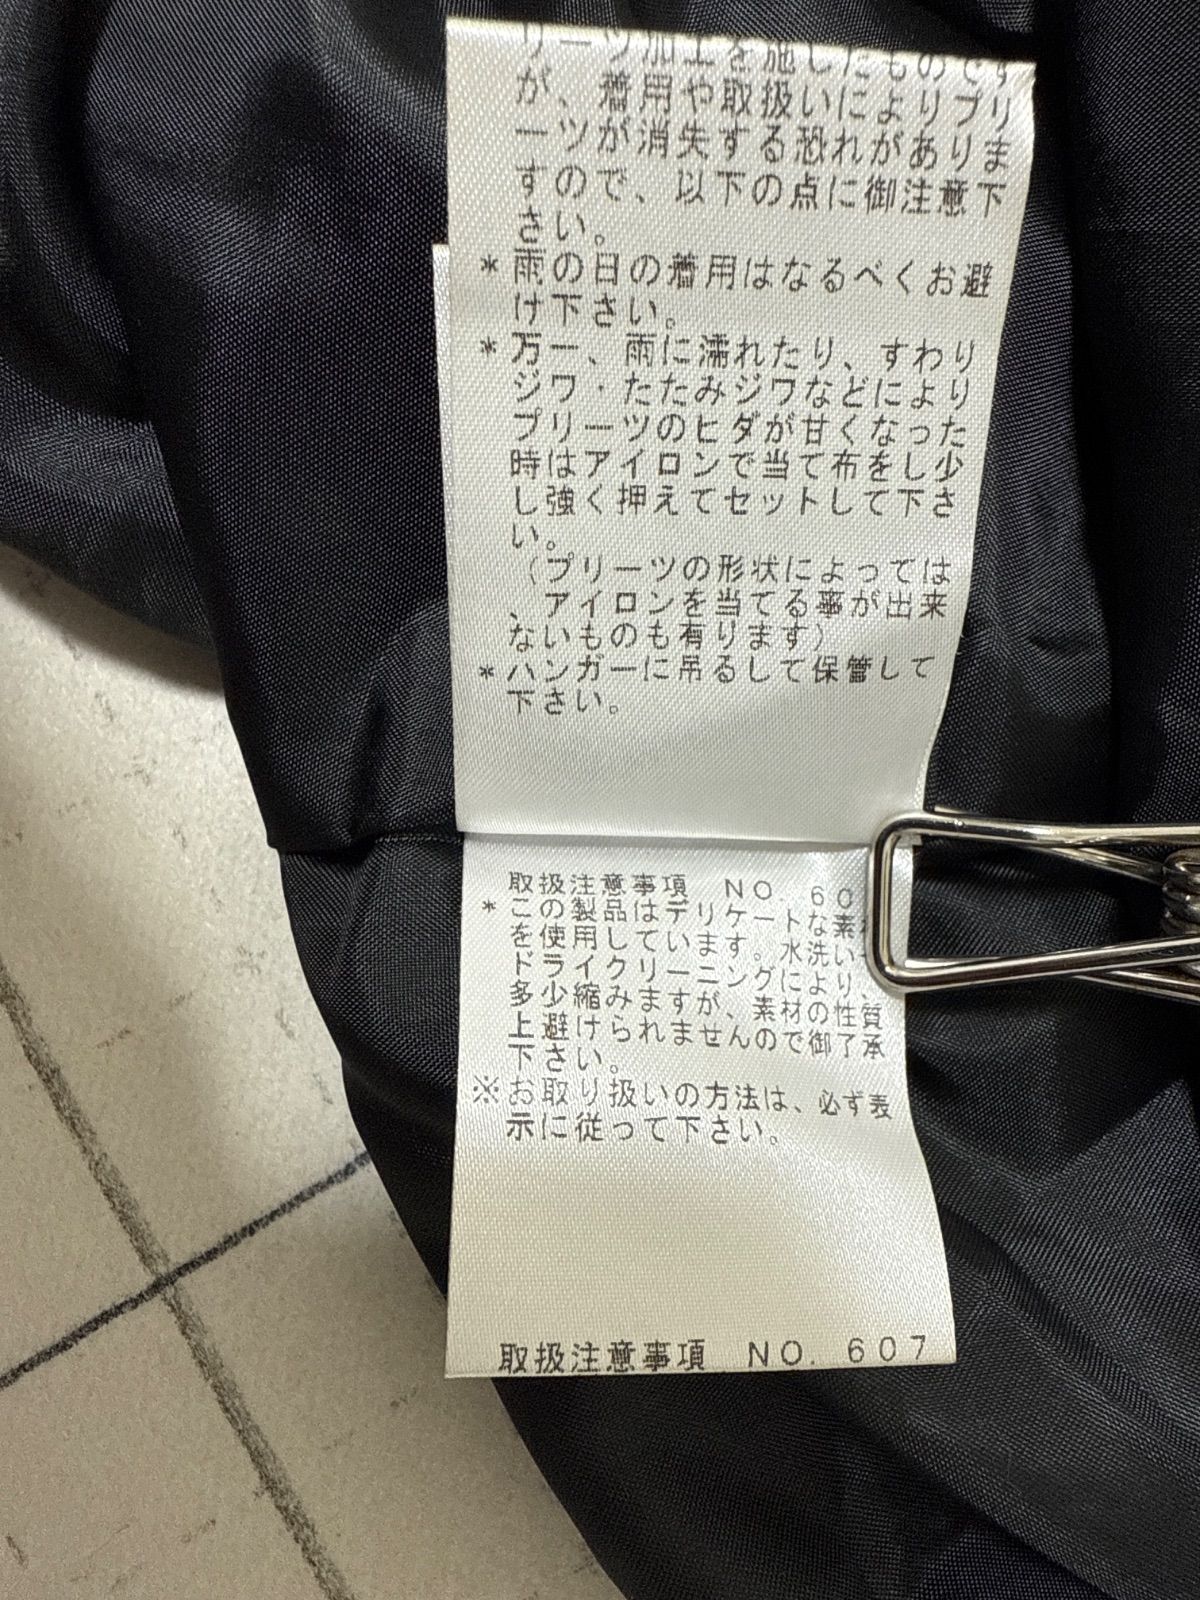 リーツ加工を施したものです
が、着用や取扱いによりプリ
ーツが消失する恐れがありま
すので、以下の点に御注意下
さい。
*雨の日の着用はなるべくお避
け下さい。
*万一、雨に濡れたり、すわり
ジワ・たたみジワなどにより
プリーツのヒダが甘くなった
時はアイロンで当て布をし少
し強く押えてセットして下さ
い。
(プリーツの形状によっては
、アイロンを当てる事が出来
ないものも有ります)
*ハンガーに吊るして保管して
下さい。
取扱注意事項 NO. 60
*この製品はデリケートな素
を使用しています。水洗い
ドライクリーニングにより、
多少縮みますが、素材の性質
上避けられませんので御了承
下さい。
※お取り扱いの方法は、必ず表
示に従って下さい。
取扱注意事項 NO. 607